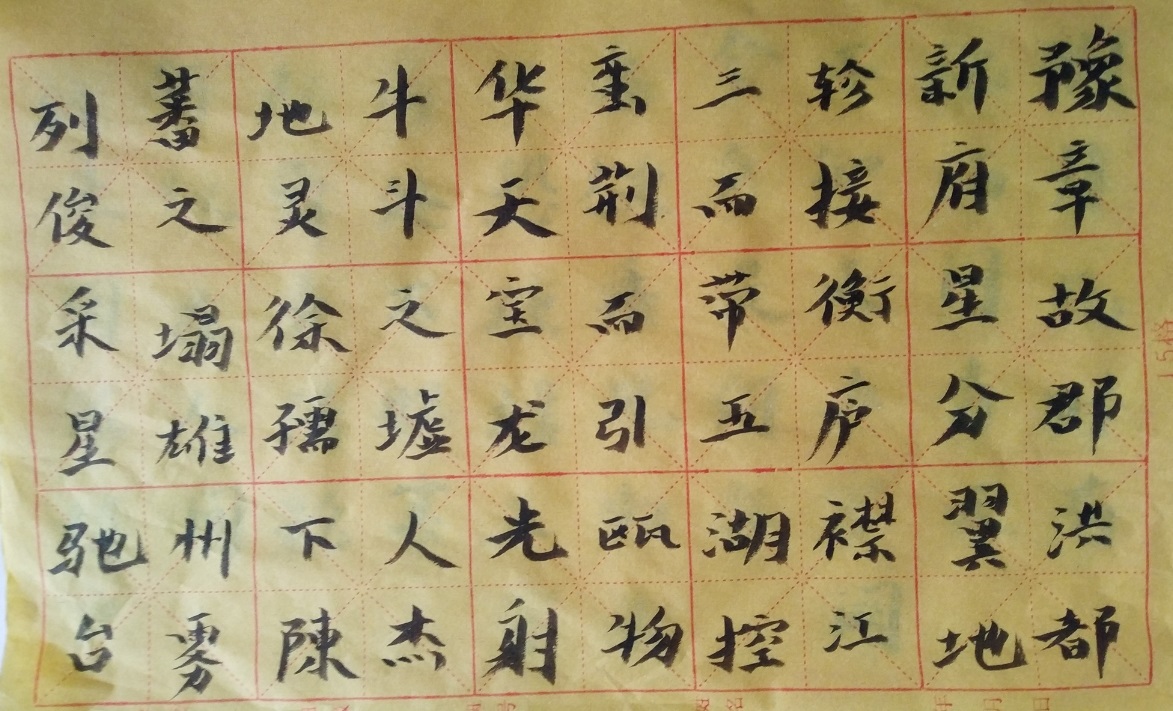 豫章故郡洪都
新府星分翼地
轸接衡庐襟江
三而带五湖控
蛮荆而引瓯物
华天宝龙光射
牛斗之墟人杰
地灵徐孺下陳
蕃之塌雄州雾
列俊采星驰台